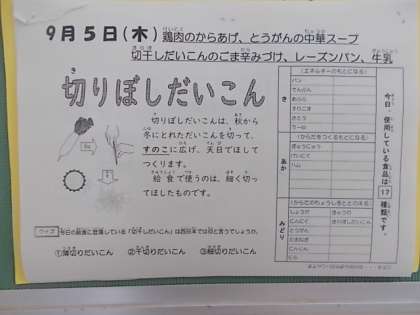 9月5日(木) 鶏肉のからあげ、とうがんの中華スープ
切干しだいこんのごま辛みづけ、レーズンパン、牛乳
切りぼしだいこん
切りぼしだいこんは、秋から
冬にとれただいこんを切って、
すのこに広げ、天日でほして
つくります。
給食で使うのは、細く切っ
てほしたものです。
クイズ 今日の給食に登場している「切干しだいこん」は西日本では何と言うでしょうか。
①薄切りだいこん ②千切りだいこん ③細切りだいこん
今日、使用している食品は17種類です。
き
(エネルギーのもとになる)
パン
でんぷん
あぶら
さとう
あか
(からだをつくるもとになる)
ぎゅうにゅう
けいにく
ハム
みどり
(からだのちょうしをととのえる)
しょうが きゅうり
にんにく 切りぼしだいこん
とうがん
たまねぎ
にんじん
にら